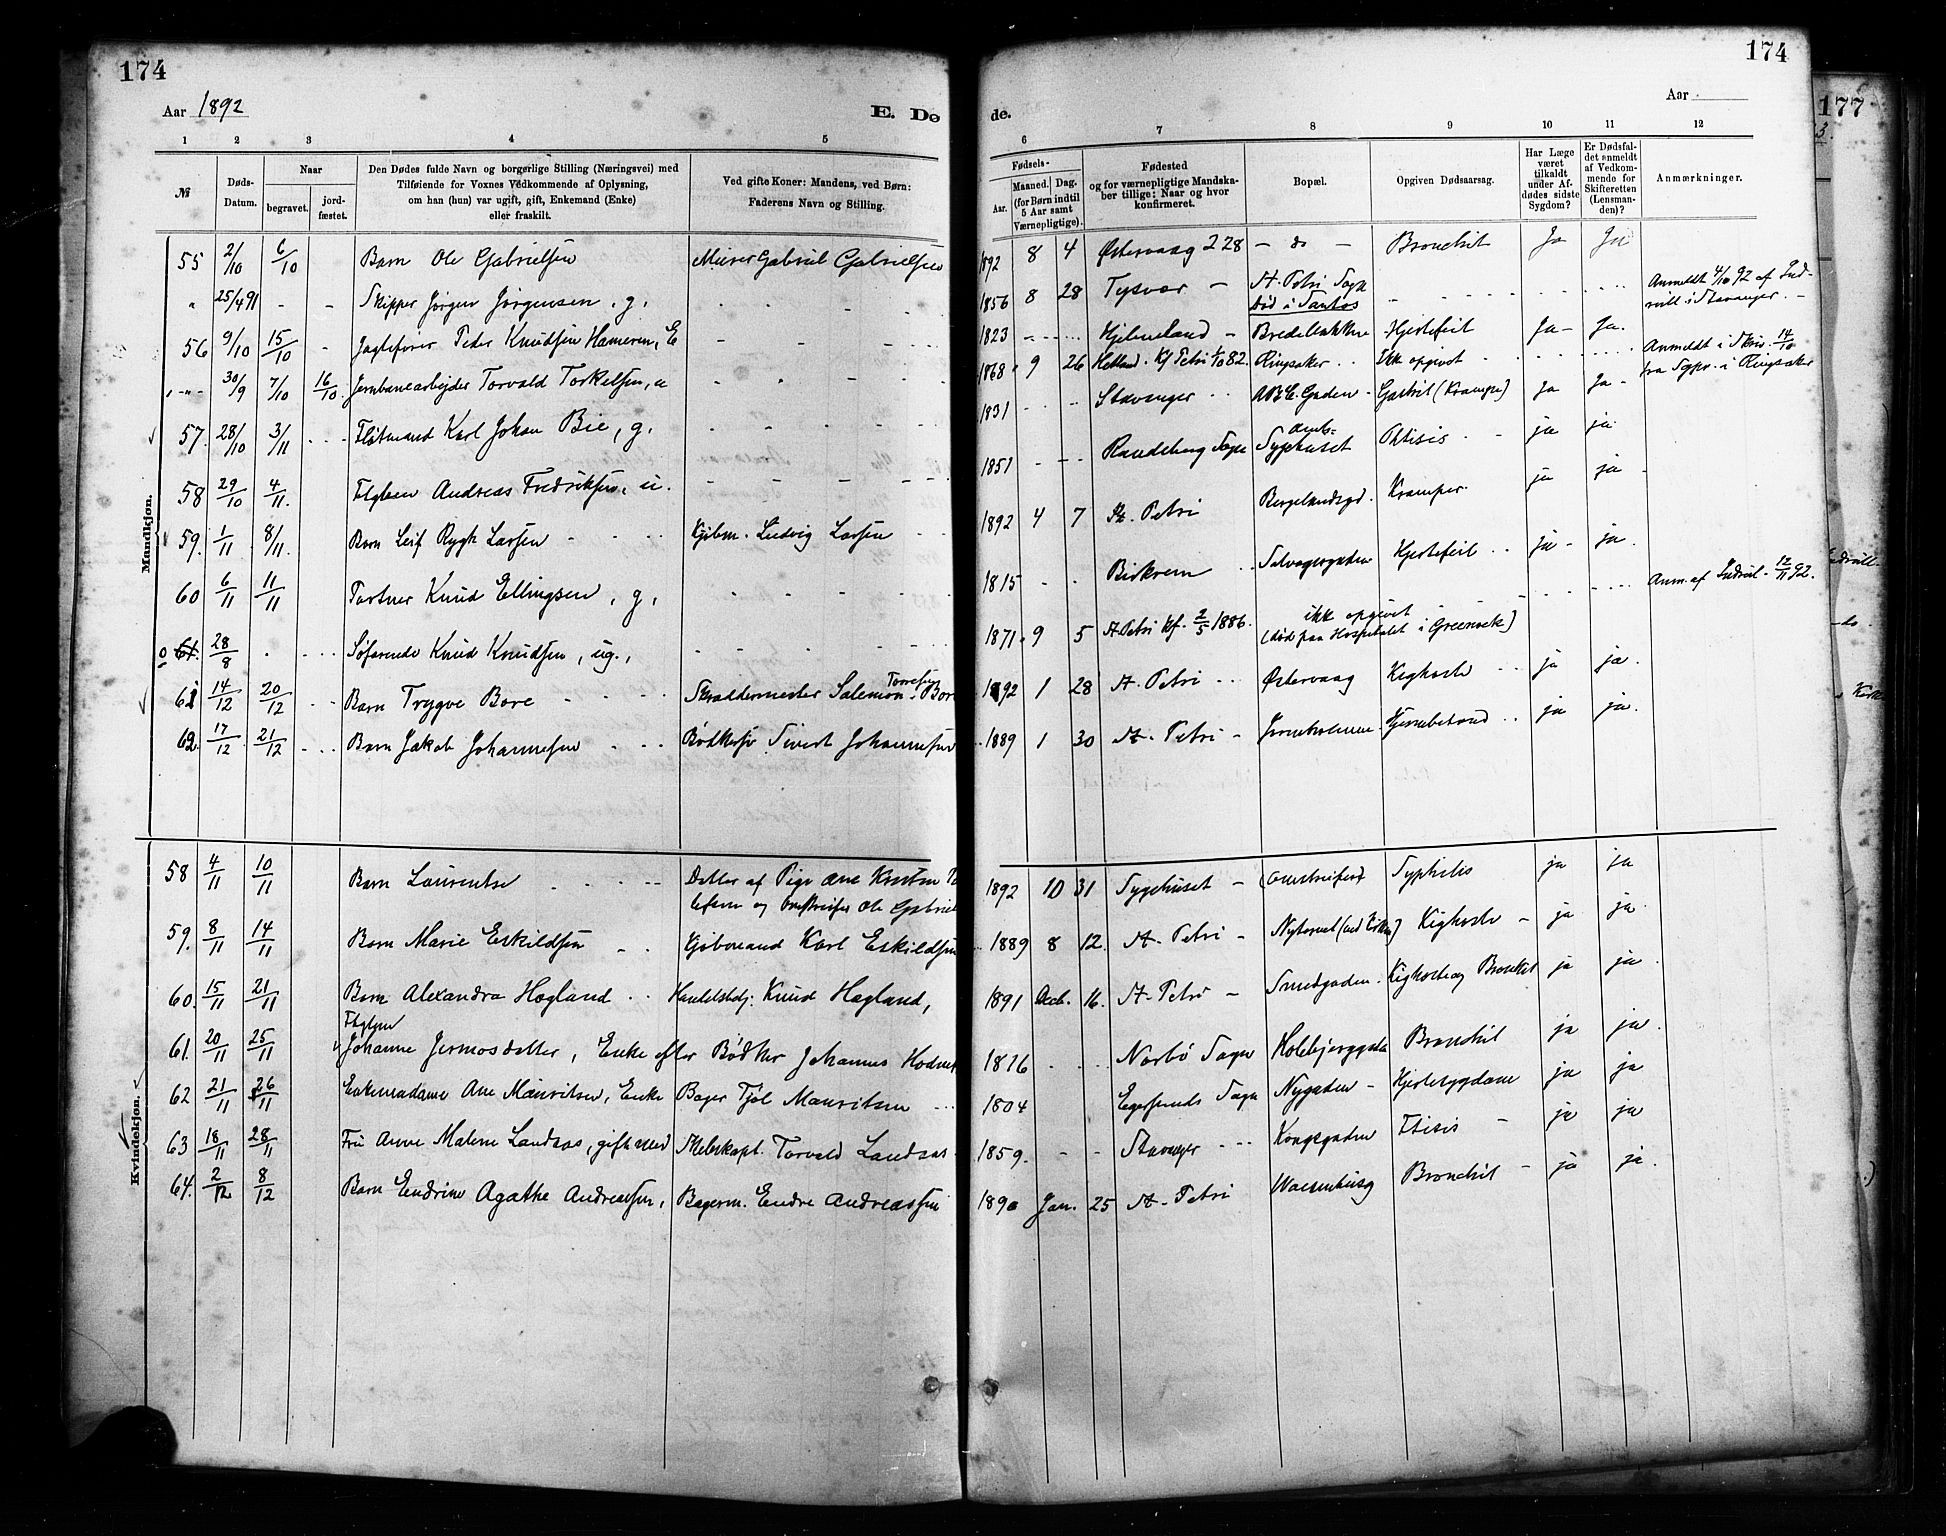 174
174
177
Aar 1892
E. Dø
de.
Aar
1 2 3 4 5
6 7 8 9 10 11 12
№
Døds-Datum.
Naar
begravet.
jord-fæstet.
Den Dødes fulde Navn og borgerlige Stilling (Næringsvei) med
Tilføiende for Voxnes Vedkommende af Oplysning,
om han (hun) var ugift, gift, Enkemand (Enke)
eller fraskilt.
Ved gifte Koner: Mandens, ved Børn:
Faderens Navn og Stilling.
Fødsels-
Aar.
Maaned. Dag.
(for Børn indtil
5 Aar samt
Værnepligtige).
Fødested
og for værnepligtige Mandska-
ber tillige: Naar og hvor
konfirmeret.
Bopæl.
Opgiven Dødsaarsag.
Har Læge
været
tilkaldt
under Af-
dødes sidste
Sygdom?
Er Dødsfal-
det anmeldt
af Vedkom-
mende for
Skifteretten
(Lensman-
den)?
Anmærkninger.
Mandkjøn.
55 2/10 6/10 Barn Ole Gabrielsen Murer Gabriel Gabrielsen 1892 8 4 Østervaag 228 – do – Bronchit Ja Ja
" 25/4 91 - - Skipper Jørgen Jørgensen, g. 1856 8 28 Tysvær – St. Petri Sogn
død i Santos
Anmeldt 4/10 92 af
i Stavanger. –
56 9/10 15/10 - Peder Knudsen Hameren, E 1823 Hjelmeland – Hjertefeil Ja – Ja.
" 30/9 7/10 16/10 Jernbanearbejder Torvald Torkelsen, u 1868 9 26 Hetland. Kf Petri 1/10 82. Ringsaker Ikk opgivet
Anmeldt i Skriv. 14/10
fra Sogpr. i Ringsaker
57. 28/10 3/11 Karl Johan Bie, g. 1831 Stavanger ABC. Gaden – Gastrit (Krampe) Ja Ja –
58 29/10 4/11 Andreas Fredriksen, u. 1851 Randeberg Sogn Amts-
Sygehuset Phtisis ja ja
59. 1/11 8/11. Barn Leif Rygh Larsen Kjøbm. Ludvig Larsen 1892 4 7 St. Petri Bergelandsgd. Kramper. ja ja –
60 6/11 11/11 Knud Ellingsen, g. 1815 Birkrem Hjertefeil ja – ja.
0 61. 28/8 Søfarende Knud Knudsen, ug., 1871. 9 5 St. Petri Kf. 2/5 1886. ikk opgivet
(død paa Hospitalet i Greenock)
Anm. af 12/11 92.
61 14/12 20/12 Barn Trygve Bore Skræddermester Salemon Torresen Bore 1892 1 28 St. Petri Østervaag Kighoste ja ja.
62. 17/12 21/12 Barn Jakob Johannesen Sivert Johannesen 1889 1 30 St. Petri – ja ja.
Kvindekjøn.
58 4/11 10/11 Barn Laurentse Datter af Pige Ane
og Ole Gabriel 1892 10 31 Sygehuset – Syphilis ja ja
59. 8/11 14/11 Barn Marie Eskildsen Kjøbmand Karl Eskildsen 1889 8 12. St. Petri – Kighoste – ja ja.
60. 15/11 21/11 Barn Alexandra Høgland Knud Høgland, 1891 Decb. 16. St. Petri – Smedgaden. Kighoste og Bronkit ja ja.
61. 20/11 25/11 Johanne Jermosdatter, Enke efter Bødker Johannes 1816 Nærbø Sogn Bronchit ja ja.
62 21/11 26/11 Enkemadame Ane Mauritsen, Enke Bager Tjøl Mauritsen 1804 Egersunds Sogn Nygaden – Hjertesygdom ja ja
63 18/11 28/11 Fru Anne Malene Landaas, gift med Torvald Landaas 1859. Stavanger Kongsgaden Ftisis – ja ja
64. 2/12 8/12 Barn Endrine Agathe Andreassen, Bagerm. Endre Andreassen 1890 Jan. 25 St. Petri Bronchit – ja ja.